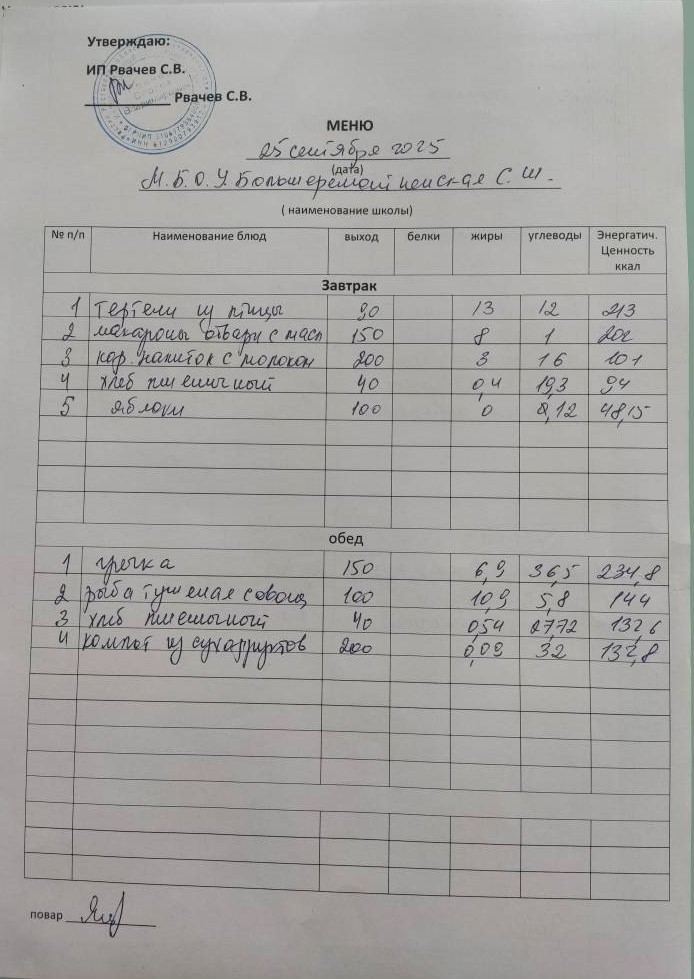 Утверждаю:
ИП Рвачев С.В.
Рвачев С.В.
МЕНЮ
25 сентября 2025
(дата)
М.Б.О.У. Большеремонтненская С.Ш.
( наименование школы)
№ п/п Наименование блюд выход белки жиры углеводы Энергатич. Ценность ккал
Завтрак
1 тефтели из птицы 90 13 12 213
2 макароны отварн с масл 150 8 1 202
3 коф. напиток с молоком 200 3 16 101
4 хлеб пшеничный 40 0,4 19,3 94
5 яблоки 100 0 9,12 48,15
обед
1 гречка 150 6,9 36,5 234,8
2 рыба тушеная с овощ 100 10,9 5,8 144
3 хлеб пшеничный 40 0,54 27,72 132,6
4 компот из сухофруктов 200 0,09 32 132,8
повар